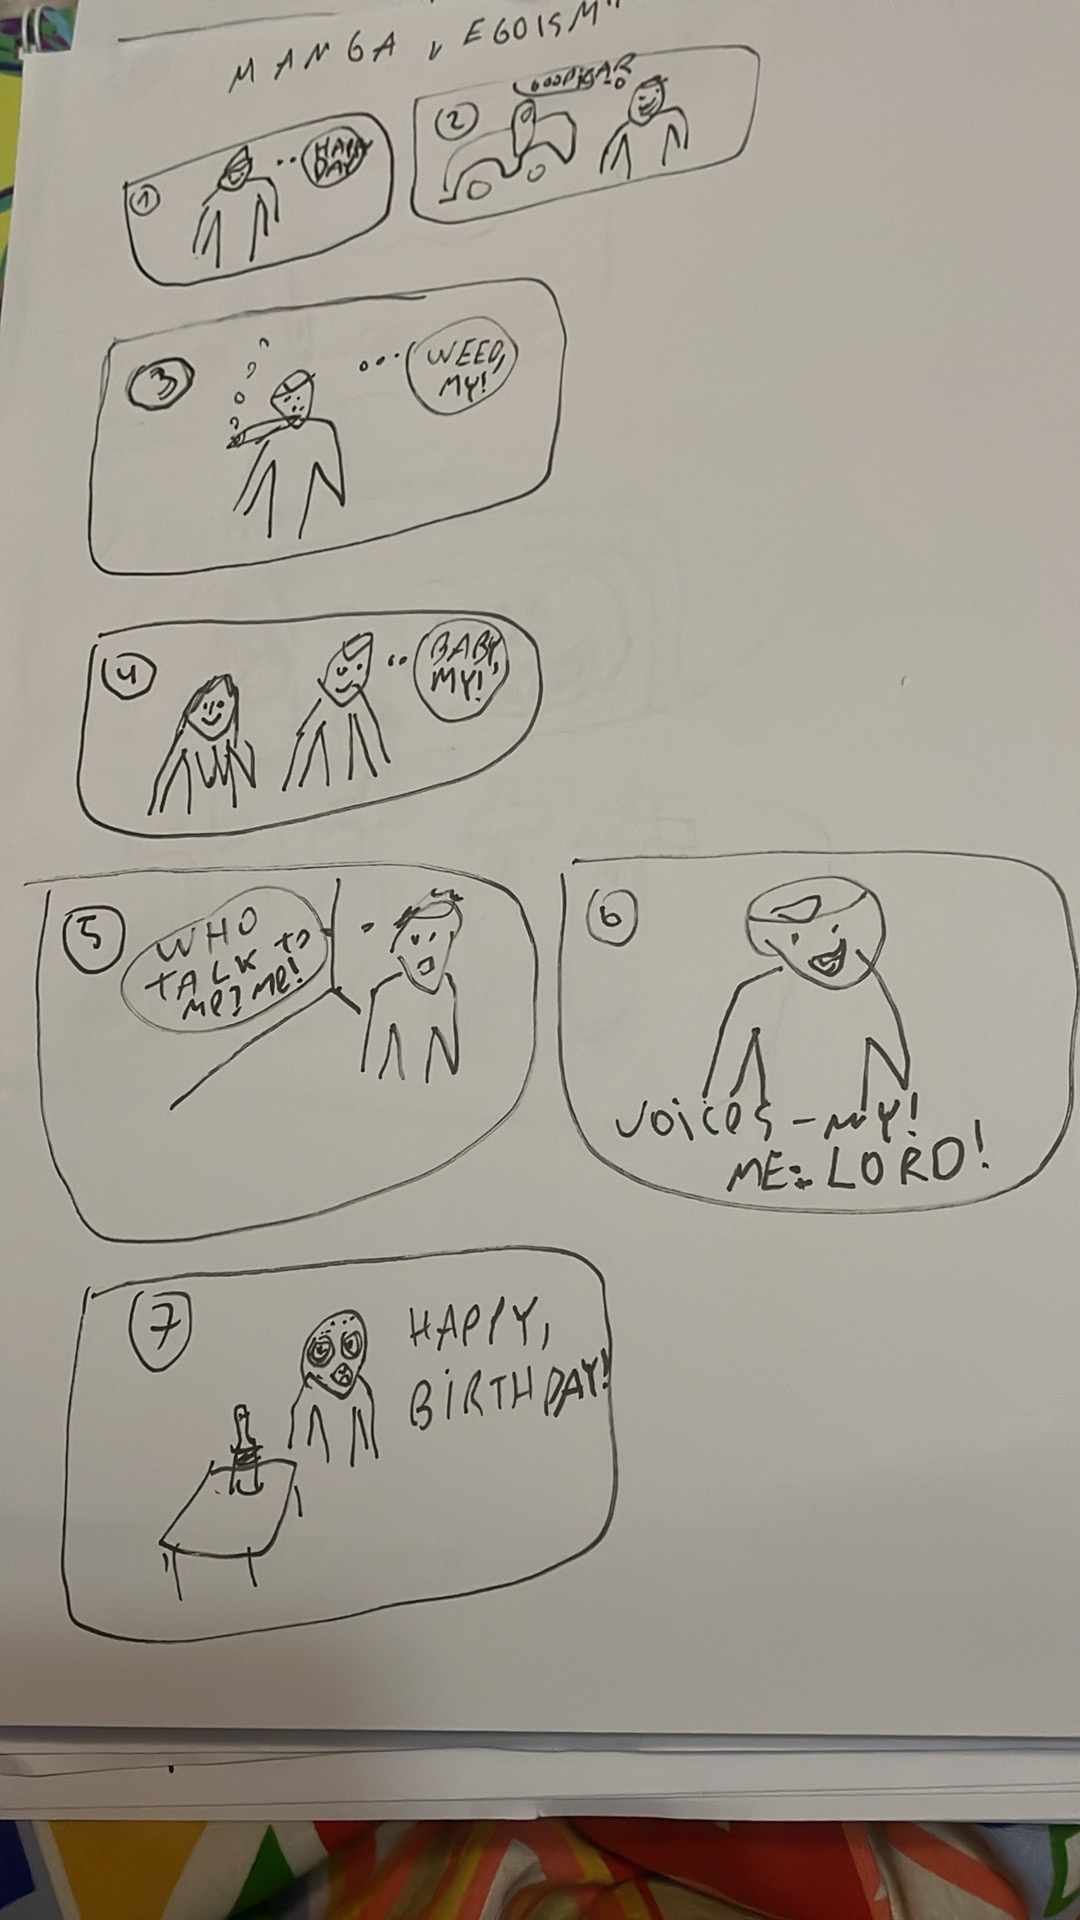 MANGA „EGOISM"
1
HAPY
DAY
2
GOOD CAR
3
WEED,
MY!
4
BABY,
MY!
5
WHO
TALK TO
ME? ME!
6
VOICES - MY!
ME: LORD!
7
HAPPY,
BIRTHDAY!